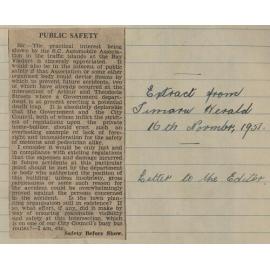 PUBLIC SAFETY
Sir—The practical interest being
shown by the S.C. Automobile Associa-
tion in the traffic islands at the Bay
Viaduct is sincerely appreciated. It
would also be in the interest of public
safety if that Association or some other
organised body could devise means by
which to prevent future accidents, two
of which have already occurred at the
intersection of Arthur and Theodosia
Streets where a Government depart-
ment is at present erecting a potential
death trap. It is absolutely deplorable
that the Government and the City
Council, both of whom inflict the strict-
est of stipulations upon the private
home-builder, should erect such an
everlasting example of lack of fore-
sight and inconsideration for the safety
of motorists and pedestrians alike.
I consider it would be only just and
in compliance with existing regulations
that the expenses and damage incurred
in future accidents at this particular
spot should be met by the department
or body who authorised the position of
this building; unless insobriety, gross
carelessness or some such reason for
the accident could be overwhelmingly
proved against the persons concerned
in the accident. Is the town plan-
ning organisation still in existence? If
so, what effort, if any, did it make by
way of ensuring reasonable visibility
and safety at this intersection, which
is on one of our City Council's busy bus
routes?—I am, etc.,
Safety Before Show.
Extract from
Timaru Herald
16th November, 1951.
Letter to the Editor.